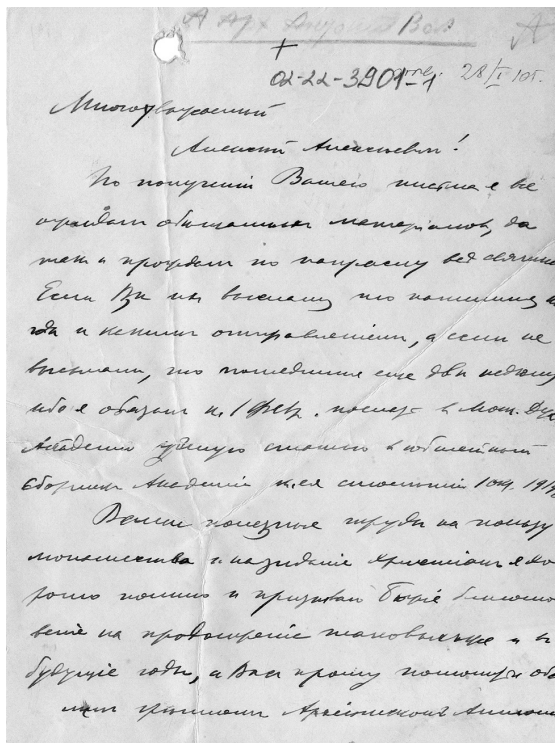 А Арх Антоній Вол
02-22-3901-1
Многоуважаемый
Алексій Алексѣевич!
По полученіи Вашего письма я все
ожидал обѣщанных матеріалов, да
так и прождал по напрасну всѣ святки
Если Вы их выслали, то напишите
и каким отправленіем, а если не
выслали, то пошлите еще
ибо я обязан к. 1 февр. послать в Мос. Дух
Академію ученую статью в юбилейный
сборник Академіи к ея столѣтію 1 окт. 191
Ваши полезные труды на пользу
монашества и назиданіе христіан я хо
рошо помню и призываю Божіе благосло
веніе на продолженіе таковых же и в
будущіе годы, а Вас прошу помянуть
Архіепископ Антоній